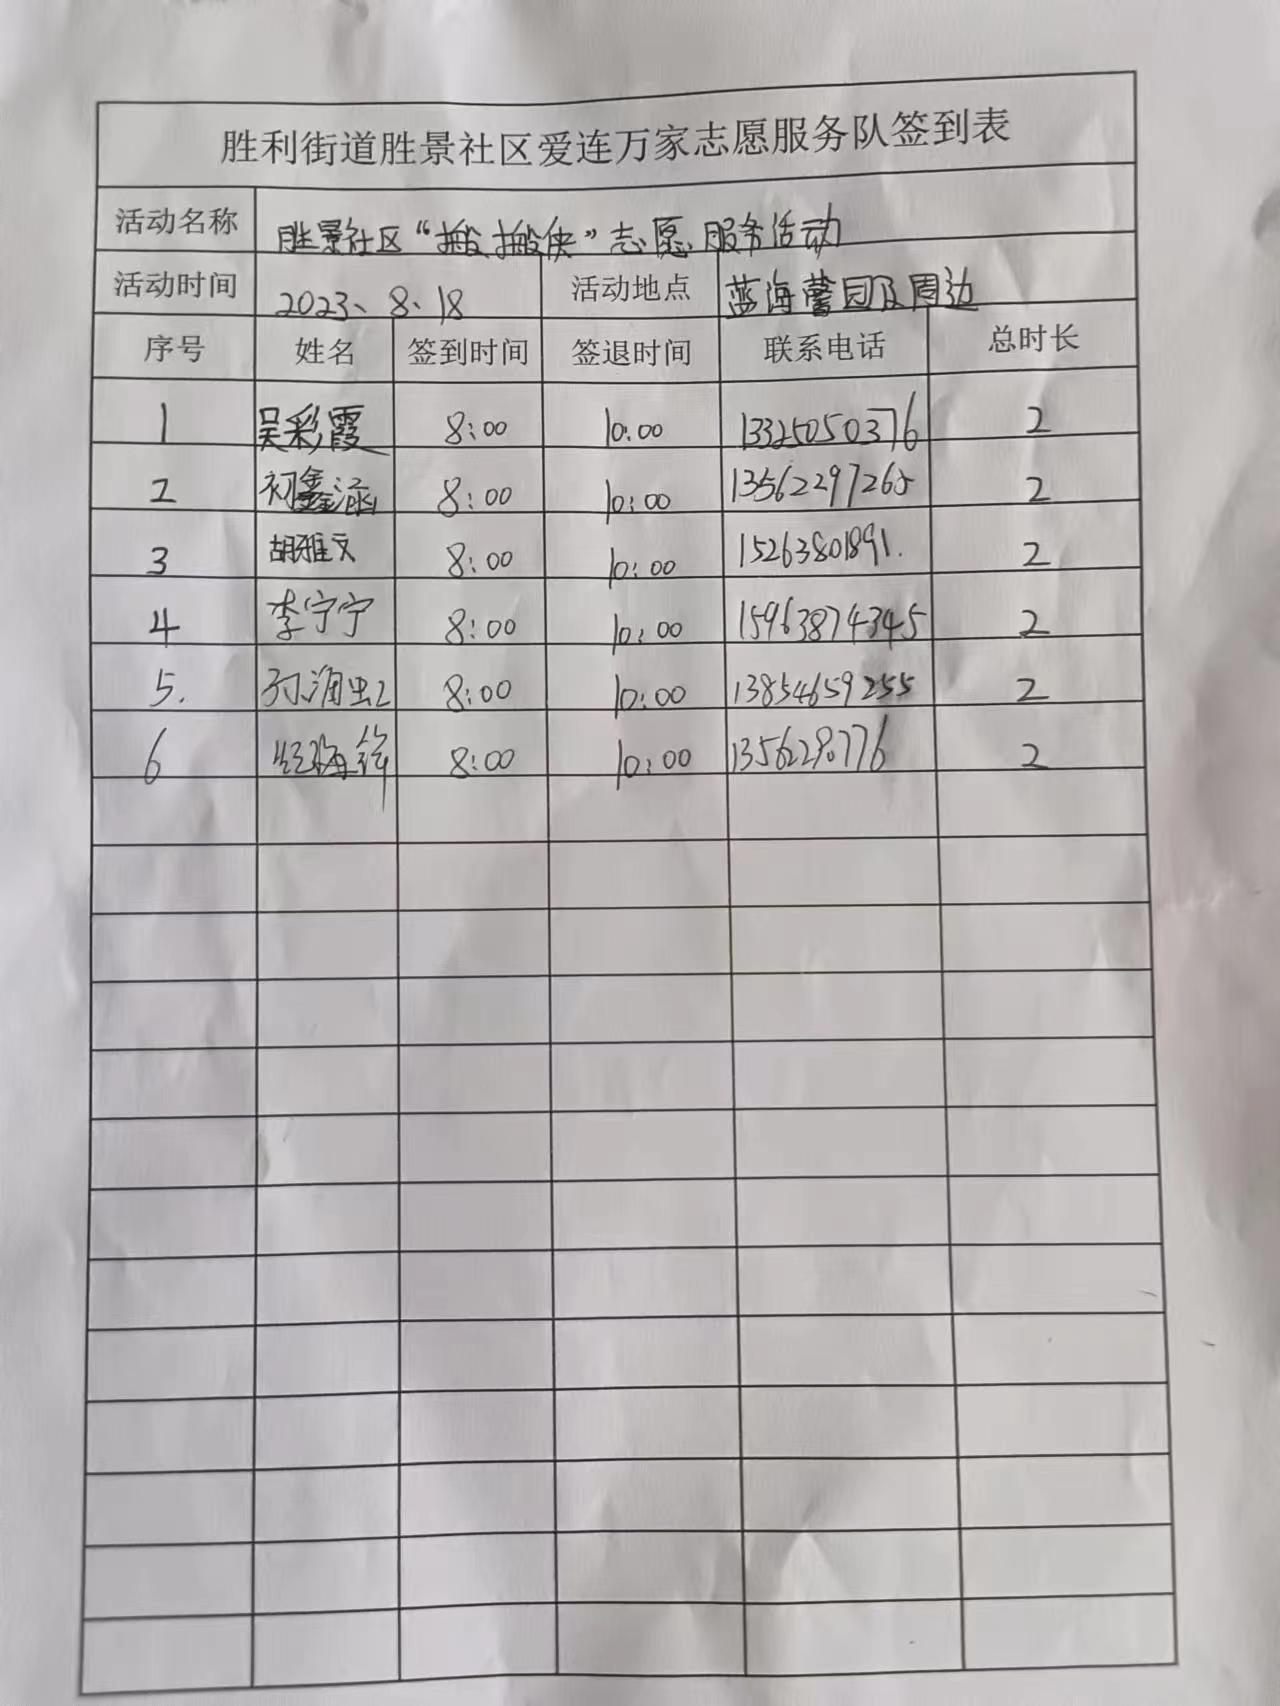 胜利街道胜景社区爱连万家志愿服务队签到表
活动名称 胜景社区“搬搬侠”志愿服务活动
活动时间 2023、8、18 活动地点 蓝海馨园及周边
序号 姓名 签到时间 签退时间 联系电话 总时长
1 吴彩霞 8:00 10:00 13325050376 2
2 初鑫涵 8:00 10:00 13562297265 2
3 胡雅文 8:00 10:00 15263801891. 2
4 李宁宁 8:00 10:00 15963874345 2
5. 8:00 10:00 13854659255 2
6 8:00 10:00 2